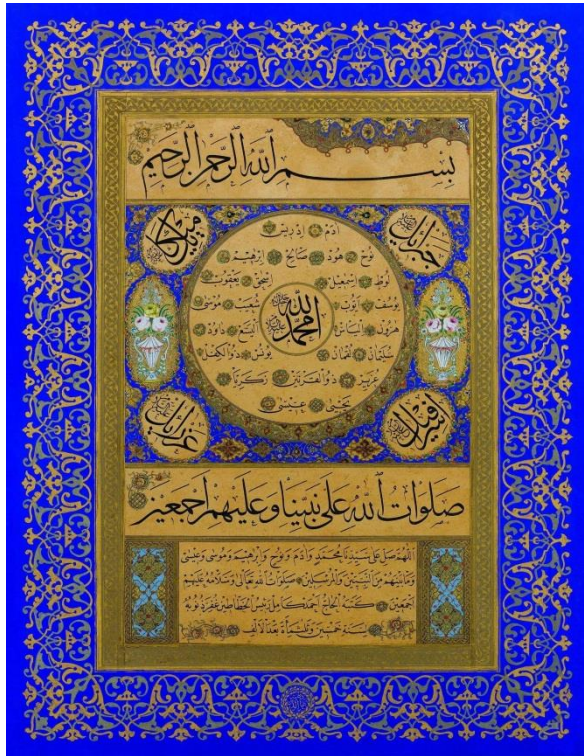 بسم الله الرحمن الرحيم
جبرائيل
ميكائيل
آدم إدريس
نوح هود صالح إبرهيم
لوط إسمعيل إسحق يعقوب
يوسف أيوب شعيب موسى
الله محمد
هرون الياس اليسع داود
سليمان لقمان يونس ذو الكفل
عزير ذو القرنين زكريا
يحيى عيسى
اسرافيل
عزرائيل
صلوات الله على نبينا وعليهم أجمعين
اللهم صل على سيدنا محمد وآدم ونوح وإبرهيم وموسى وعيسى
وما بينهم من النبيين والمرسلين صلوات الله تعالى وسلامه عليهم
أجمعين كتبه الحاج أحمد كامل رئيس الخطاطين غفر ذنوبه
سنة خمسين وثلثمأة بعد الألف